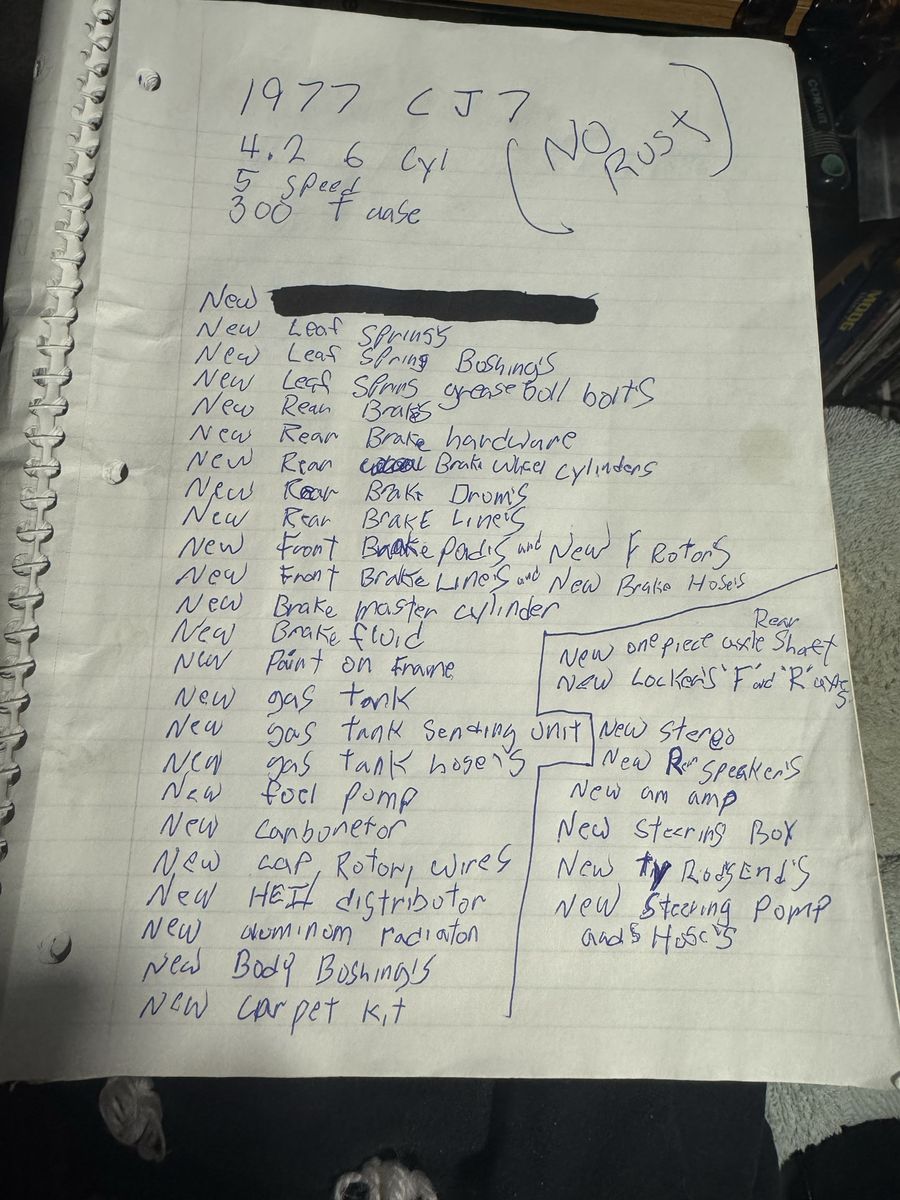 1977 CJ7
4.2 6 Cyl
5 Speed
300 T case
(NO RUST)
New
New Leaf Springs
New Leaf Spring Boshing's
New Leaf Spring grease boll bolts
New Rear Brakes
New Rear Brake hardware
New Rear Brake Wheel cylinders
New Rear Brake Drom's
New Rear BrakE Line's
New Front Brake Pads and New F Rotors
New Front Brake Line's and New Brake Hose's
New Brake master cylinder
New Brake fluid
New Paint on Frame
New gas tank
New gas tank sending unit
New gas tank hose's
New foel pomp
New Carbonetor
New cap, Rotor, wires
New HEI distributor
New alominom radiator
New Body Boshing's
New carpet kit
New one piece Rear axle Shaft
New Locker's "F" and "R" axles
New Stereo
New Rear Speaker's
New am amp
New Steering Box
New Ty Rods End's
New Steering Pomp
and Hose's
CONAIR